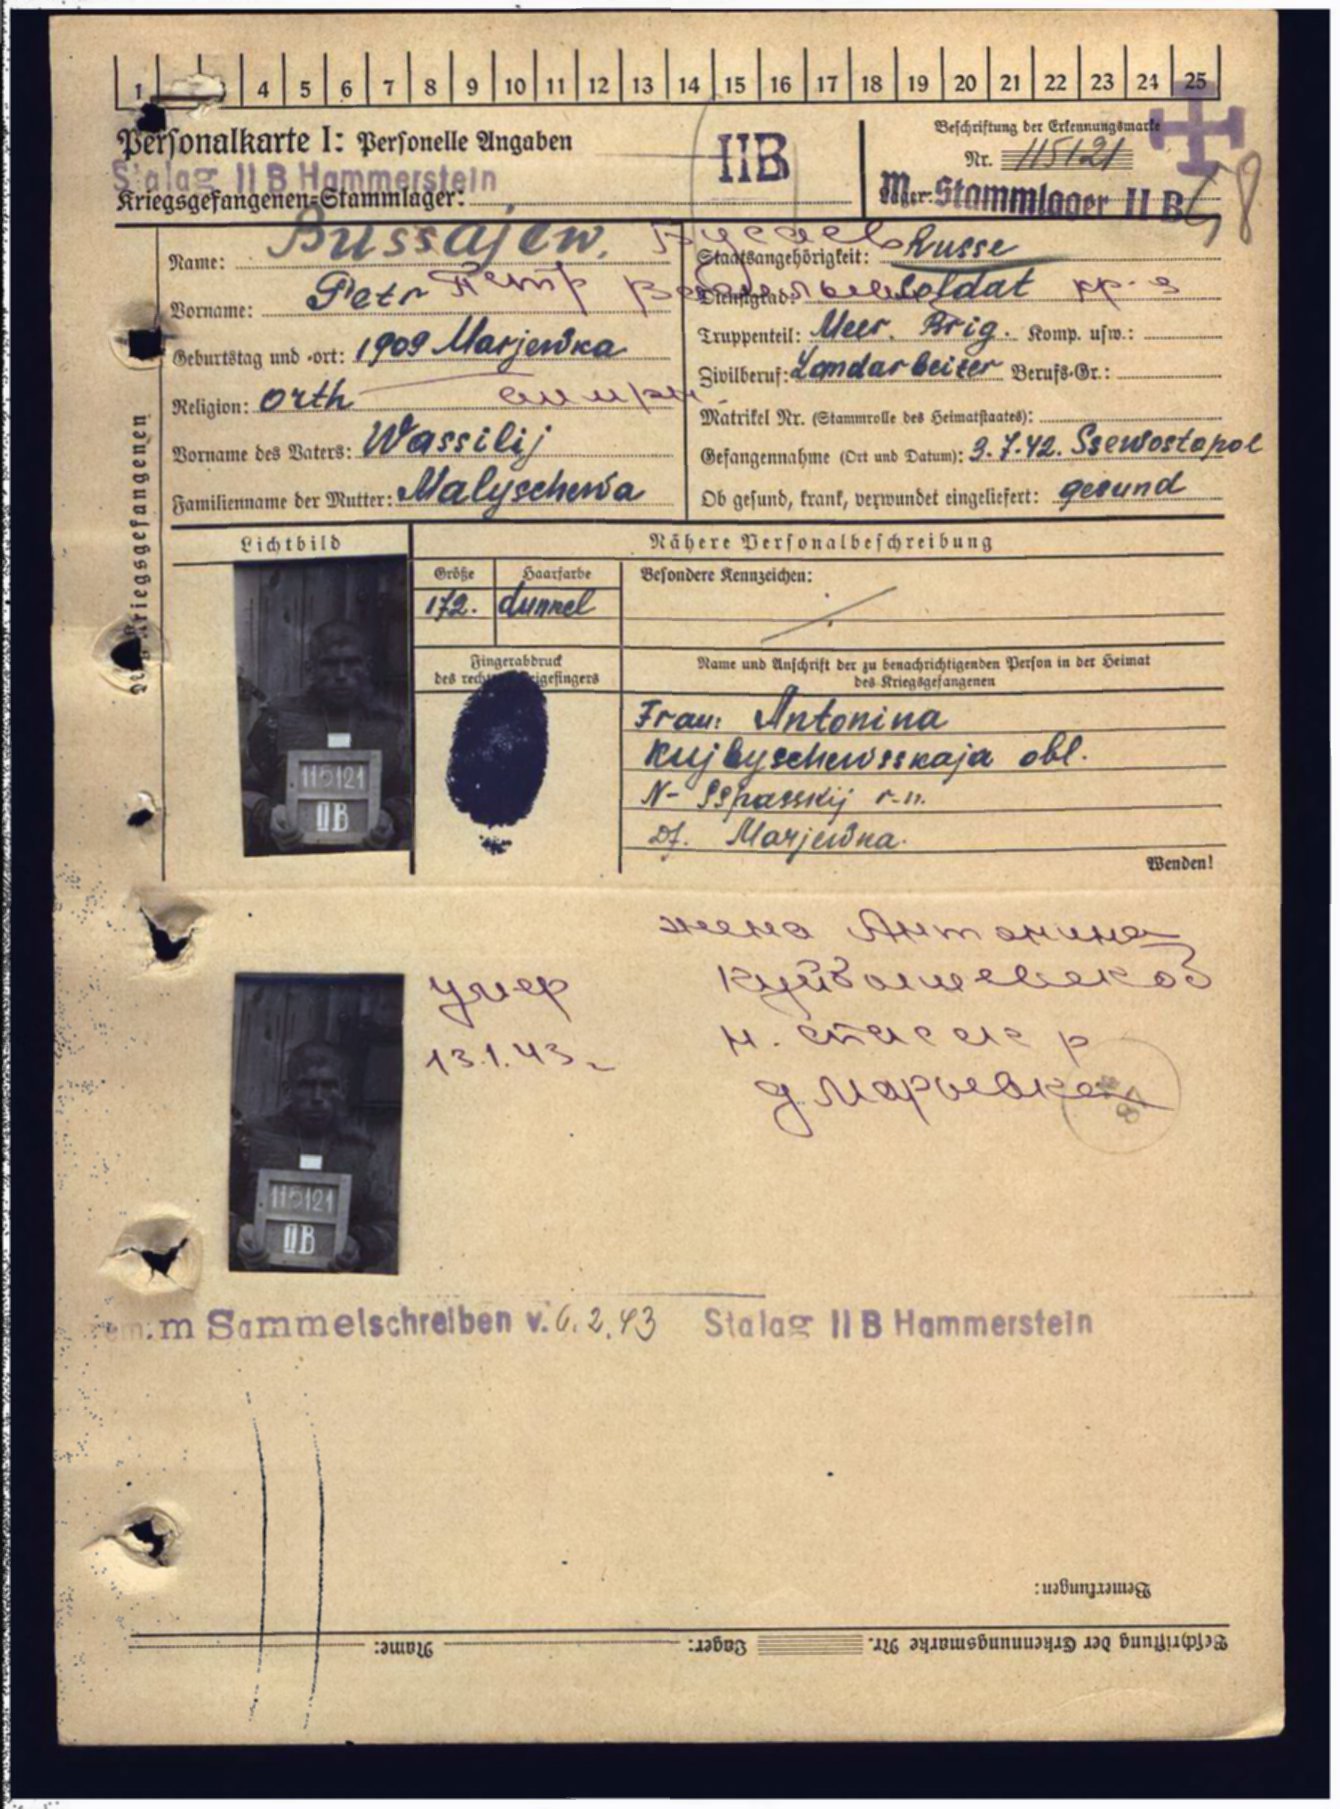 1 4 5 6 7 8 9 10 11 12 13 14 15 16 17 18 19 20 21 22 23 24 25
Personalkarte I: Personelle Angaben
IIB
Beschriftung der Erkennungsmarke
Nr. 115121
Stalag II B Hammerstein
Kriegsgefangenen-Stammlager:
Lager: Stammlager II B
Des Kriegsgefangenen
Name: Bussajew, Бусаев
Vorname: Petr Петр
Geburtstag und -ort: 1909 Marjewka
Religion: Orth
Vorname des Vaters: Wassilij
Familienname der Mutter: Malyschewa
Staatsangehörigkeit: Russe
Dienstgrad: Soldat кр-ц
Truppenteil: Meer. Brig. Komp. usw.:
Zivilberuf: Landarbeiter Berufs-Gr.:
Matrikel Nr. (Stammrolle des Heimatstaates):
Gefangennahme (Ort und Datum): 3.7.42. Ssewostopol
Ob gesund, krank, verwundet eingeliefert: gesund
Lichtbild
Nähere Personalbeschreibung
Größe
Haarfarbe
Besondere Kennzeichen:
172.
dunkel
Fingerabdruck
des rechten Zeigefingers
Name und Anschrift der zu benachrichtigenden Person in der Heimat
des Kriegsgefangenen
Frau: Antonina
Kujbyschewsskaja obl.
N- Sspasskij r-n.
Df. Marjewka.
Wenden!
115121
IIB
жена Антонина
Куйбышевской
н. спасск р
д. Марьевка
умер
13.1.43
115121
IIB
m Sammelschreiben v. 6.2.43 Stalag II B Hammerstein
Bemerkungen:
Beschriftung der Erkennungsmarke Nr. Lager: Name: